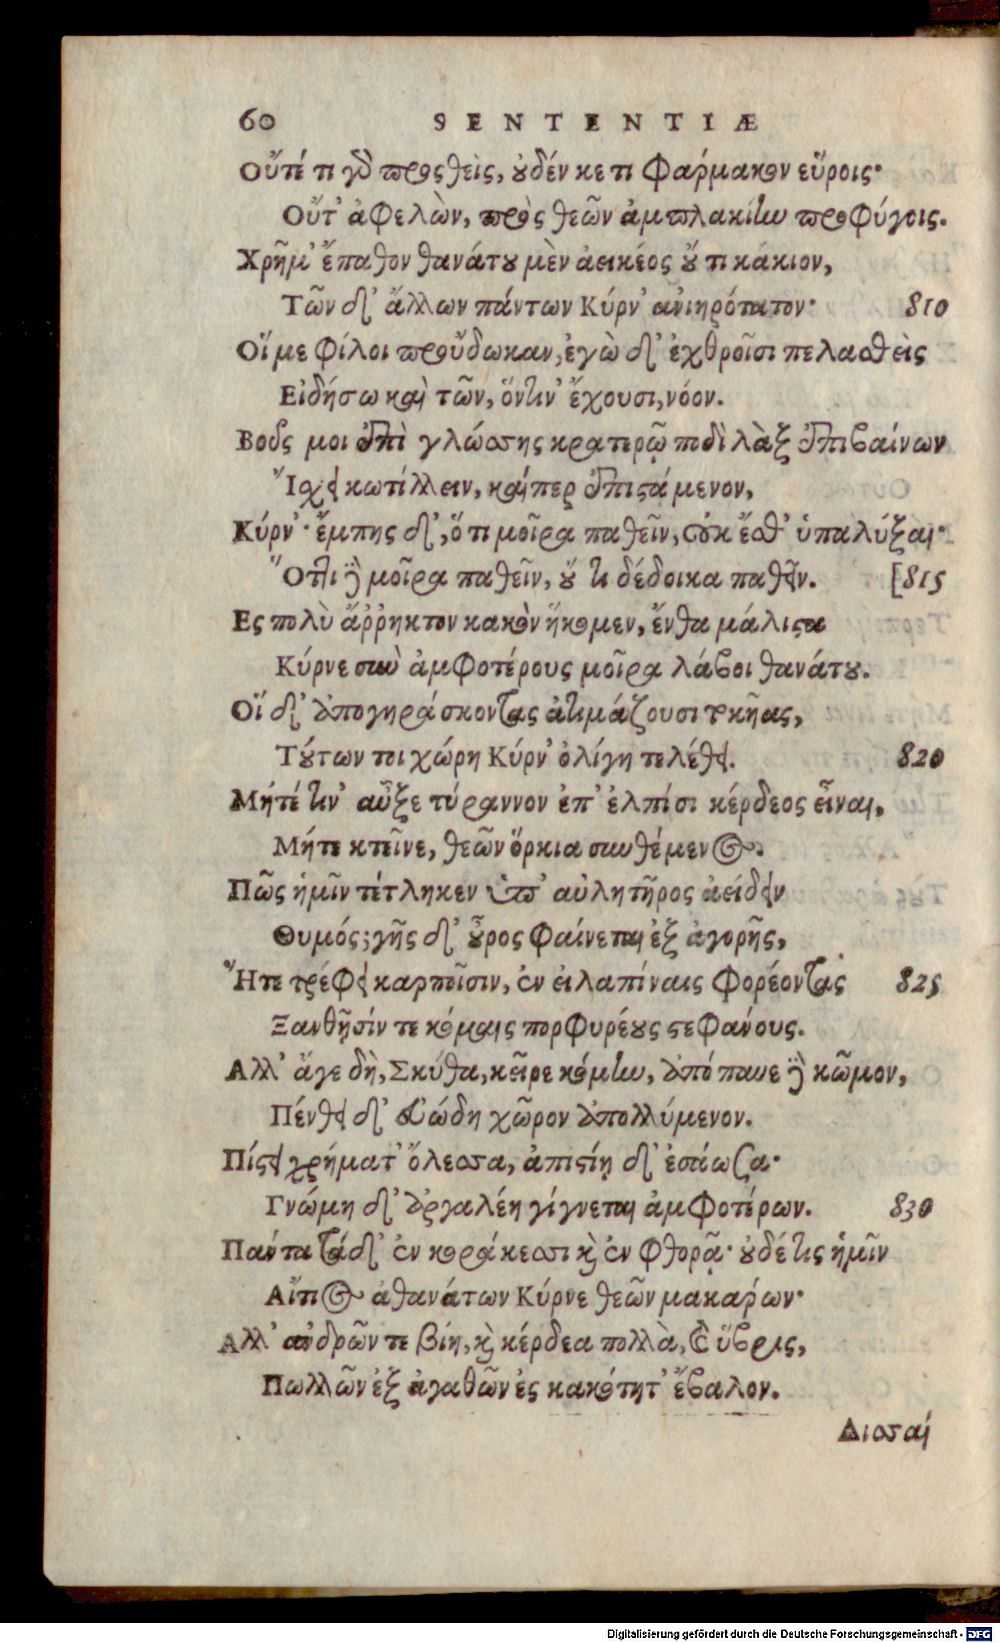 60 SENTENTIÆ
Οὔτέ τι γὰρ προςθεὶς, οὐδέν κε τι φάρμακον εὕροις·
Οὔτ' ἀφελὼν, πρὸς θεῶν ἀμπλακίην προφύγοις.
Χρῆμ' ἔπαθον θανάτου μὲν ἀεικέος οὔ τι κάκιον,
Τῶν δ' ἄλλων πάντων Κύρν' ἀνιηρότατον· 810
Οἵ με φίλοι προὔδωκαν, ἐγὼ δ' ἐχθροῖσι πελασθεὶς
Εἰδήσω καὶ τῶν, ὅντιν' ἔχουσι, νόον.
Βοῦς μοι ἐπὶ γλώσσης κρατερῷ ποδὶ λὰξ ἐπιβαίνων
Ἴσχει κωτίλλειν, καίπερ ἐπιστάμενον,
Κύρν'· ἔμπης δ', ὅ τι μοῖρα παθεῖν, οὐκ ἔσθ' ὑπαλύξαι·
Ὅττι δὲ μοῖρα παθεῖν, οὔ τι δέδοικα παθεῖν. [815
Ες πολὺ ἄῤῥηκτον κακὸν ἥκομεν, ἔνθα μάλιστα
Κύρνε σιωὺ ἀμφοτέρους μοῖρα λάβοι θανάτου.
Οἵ δ' ἀπογηράσκοντας ἀτιμάζουσι τοκῆας,
Τούτων τοι χώρη Κύρν' ὀλίγη τελέθει. 820
Μήτέ τιν' αὖξε τύραννον ἐπ' ἐλπίσι κέρδεος εἶναι,
Μήτε κτεῖνε, θεῶν ὅρκια συνθέμενος.
Πῶς ἡμῖν τέτληκεν ὑπ' αὐλητῆρος ἀείδειν
Θυμός; γῆς δ' οὖρος φαίνεται ἐξ ἀγορῆς,
Ἥτε τρέφει καρποῖσιν, ἐν εἰλαπίναις φορέοντας 825
Ξανθῇσίν τε κόμαις πορφυρέους στεφάνους.
Αλλ' ἄγε δὴ, Σκύθα, κεῖρε κόμην, ἀπόπαυε δὲ κῶμον,
Πένθει δ' εὐώδη χῶρον ἀπολλύμενον.
Πίστει χρήματ' ὄλεσσα, ἀπιστίῃ δ' ἐσάωσα·
Γνώμη δ' ἀργαλέη γίγνεται ἀμφοτέρων. 830
Πάντα τάδ' ἐν κοράκεσσι καὶ ἐν φθορᾷ· οὐδέ τις ἡμῖν
Αἴτιος ἀθανάτων Κύρνε θεῶν μακάρων·
Αλλ' ἀνδρῶν τε βίη, καὶ κέρδεα πολλὰ, καὶ ὕβρις,
Πολλῶν ἐξ ἀγαθῶν ἐς κακότητ' ἔβαλον.
Δισσαί
Digitalisierung gefördert durch die Deutsche Forschungsgemeinschaft - DFG